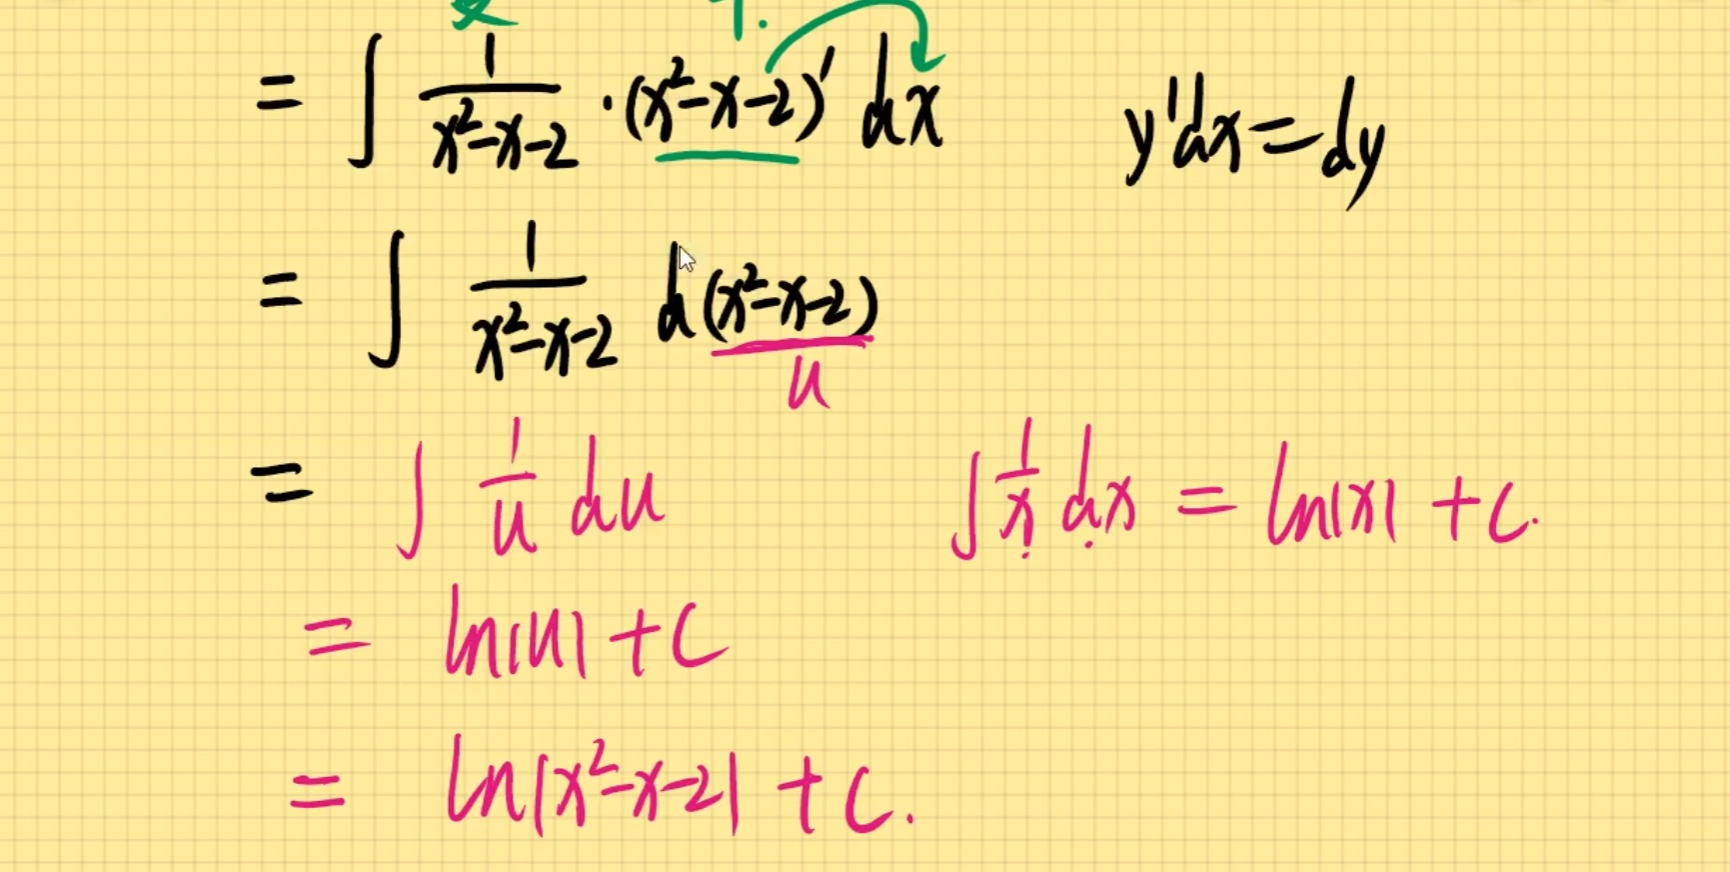 = ∫ 1/(x²-x-2) · (x²-x-2)' dx    y'dx = dy
= ∫ 1/(x²-x-2) d(x²-x-2)
u
= ∫ 1/u du    ∫ 1/x dx = ln|x| + C.
= ln|u| + C
= ln|x²-x-2| + C.